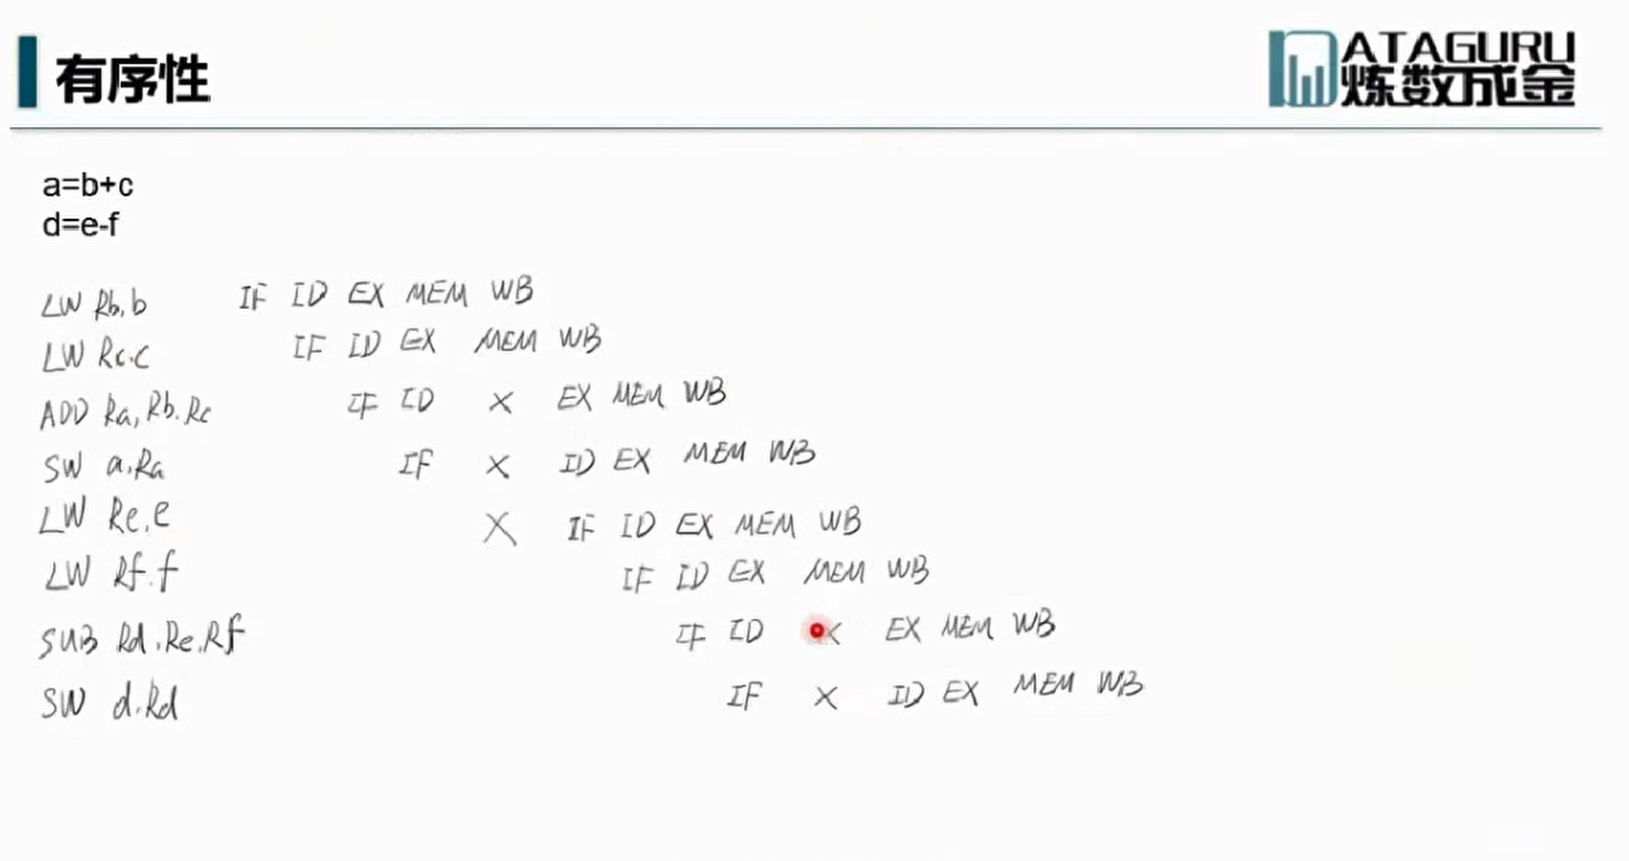 有序性
DATAGURU
炼数成金
a=b+c
d=e-f
LW Rb,b IF ID EX MEM WB
LW Rc.c IF ID EX MEM WB
ADD Ra,Rb.Rc IF ID X EX MEM WB
SW a,Ra IF X ID EX MEM WB
LW Re,e X IF ID EX MEM WB
LW Rf.f IF ID EX MEM WB
SUB Rd,Re,Rf IF ID X EX MEM WB
SW d.Rd IF X ID EX MEM WB